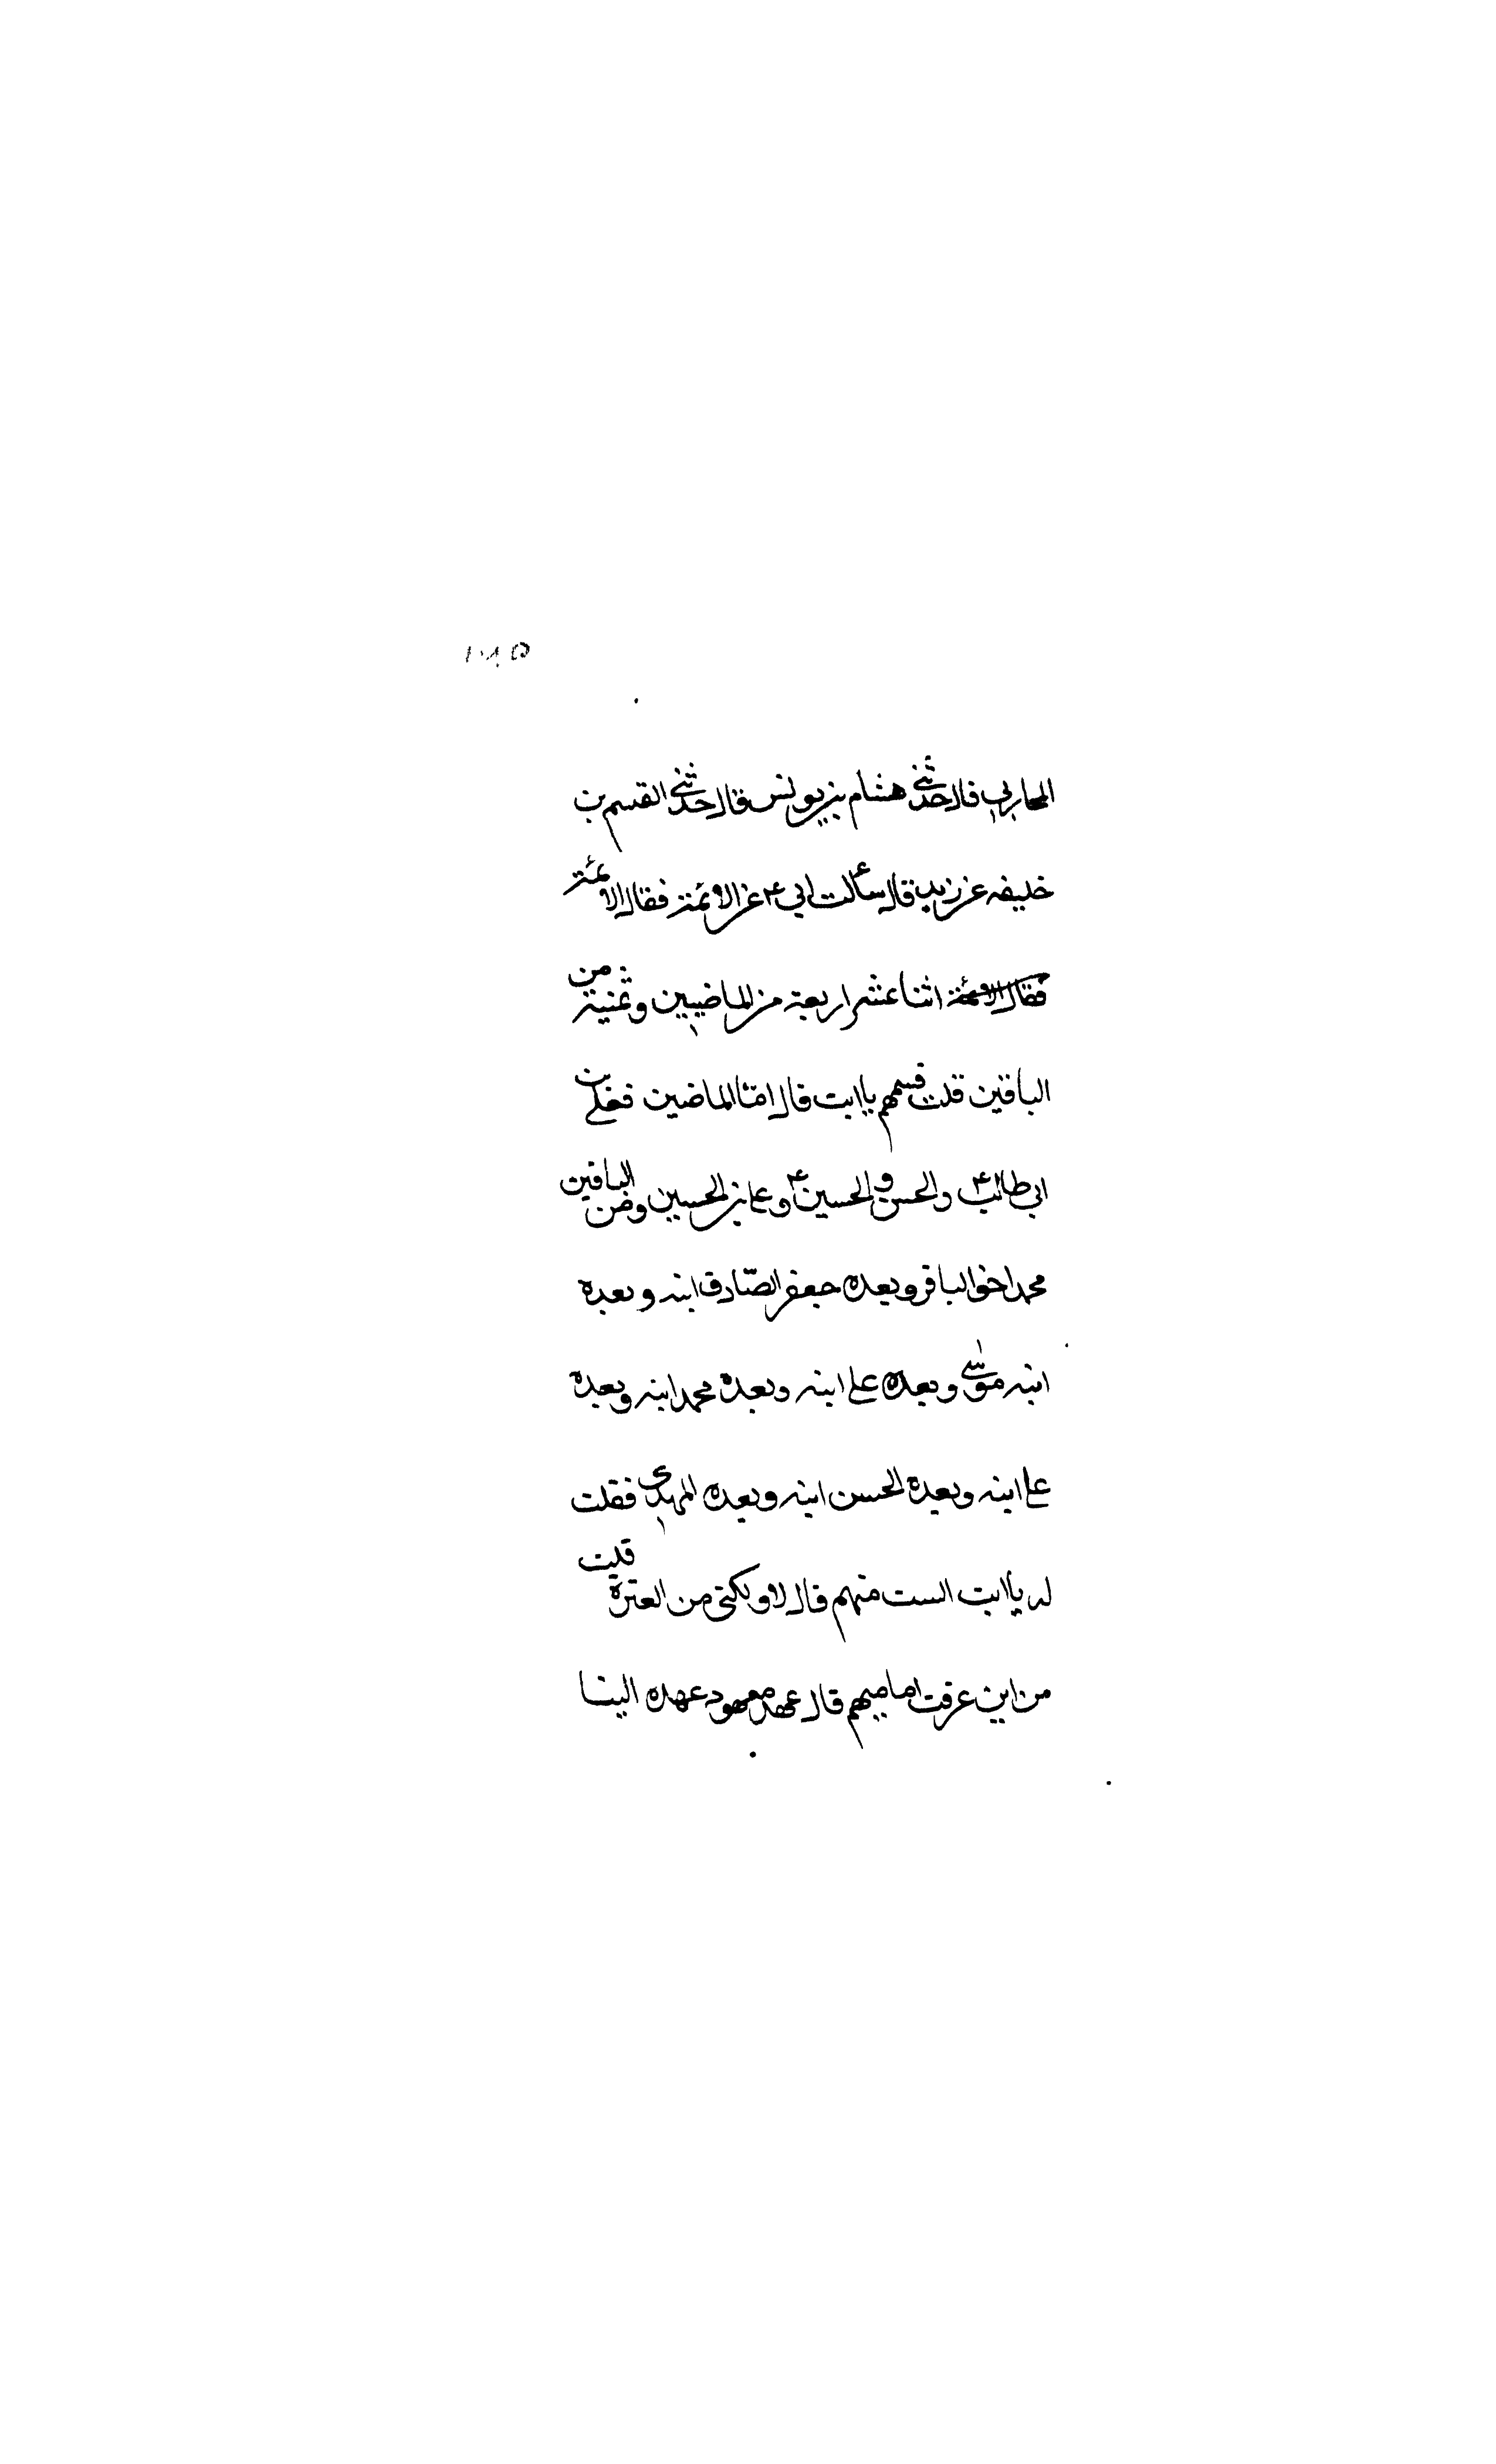 المحاربي قال حدثني هشام بن يونس قال حدثني القسم بن
خليفه عن زيد قال سألت ابي ع عن الائمة فقال الائمة
فقال الائمة اثنا عشر اربعة من الماضيين وثمنية من
الباقين قلت فسمهم يا ابت قال امّا الماضين فعلي بن
ابي طالب ع والحسن والحسين ع وعلي بن الحسين ومن الباقين
محمد اخي الباقر وبعده جعفر الصّادق ابنه وبعده
ابنه موسى وبعده علي ابنه وبعده محمد ابنه وبعده
علي ابنه وبعده الحسن ابنه وبعده المهدى فقلت
له يا ابت الست منهم قال لا ولكنى من العترة قلت
من اين عرفت اماميهم قال عهد معهود عهده الينا